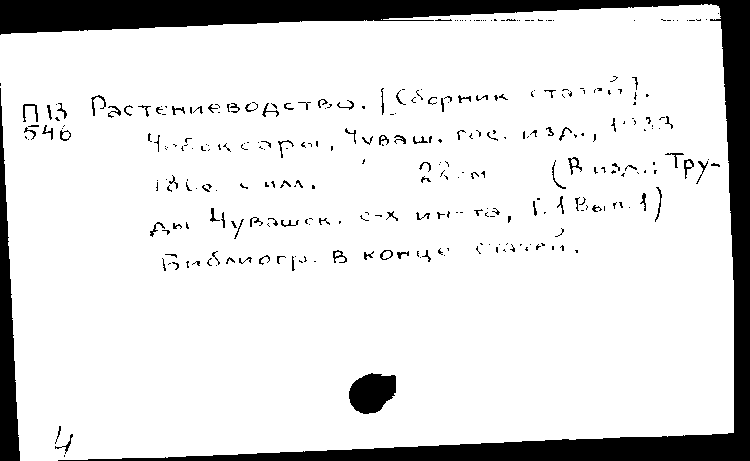 П13 Растениеводство. [Сборник статей].
546
Чебоксары, Чуваш. гос. изд.,
с илл. 22 см (В изд.: Тру-
ды Чувашск. с-х ин-та, Т.1 Вып.1)
Библиогр. в конце статей.
4